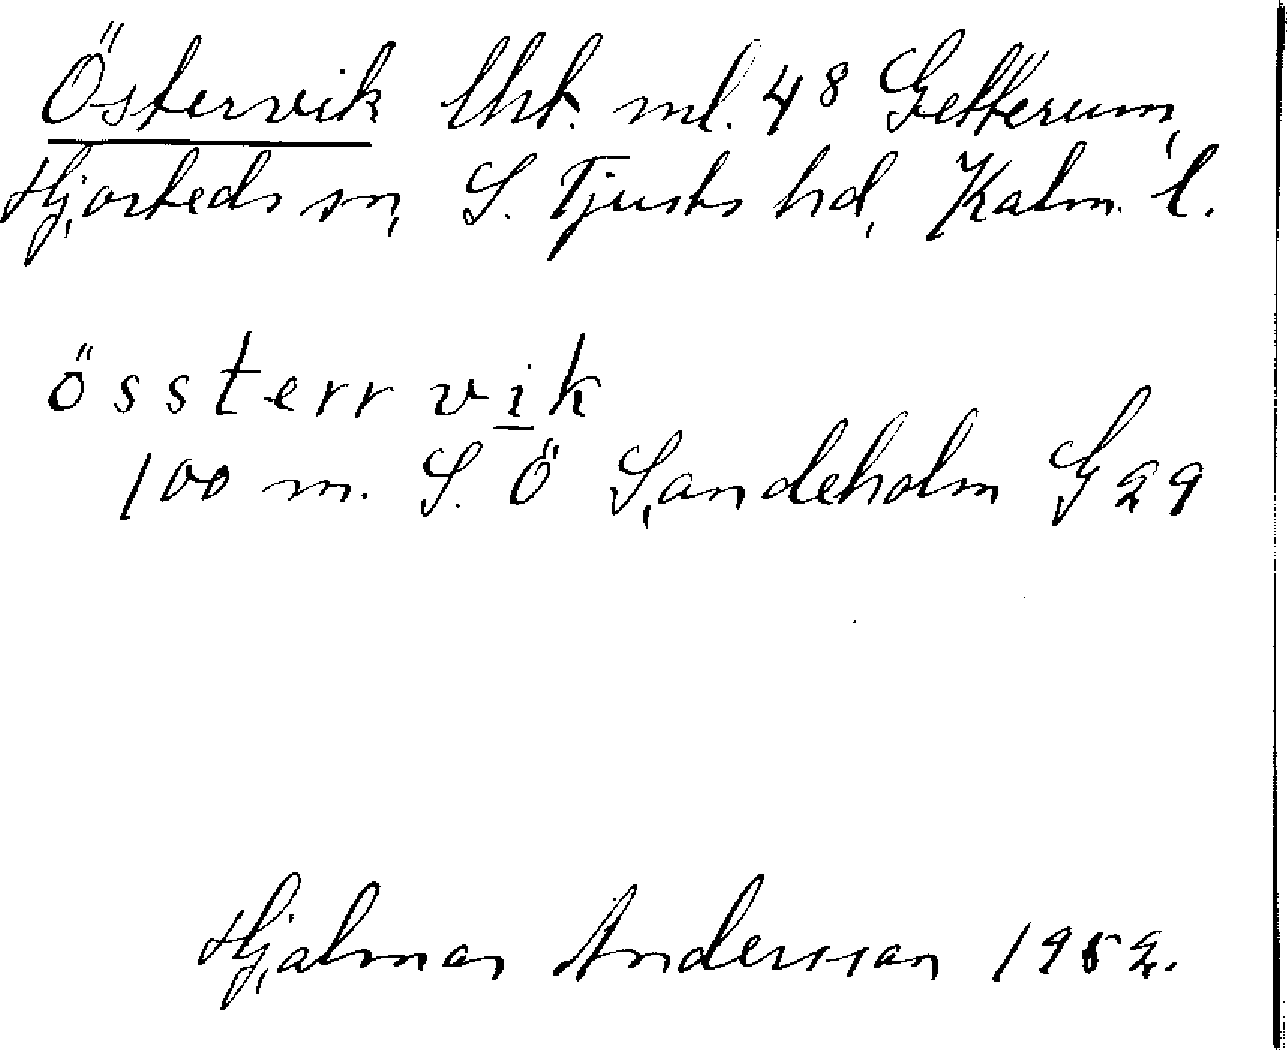 Östervik lht. ml. 48 Getterum,
Hjorteds sn, S. Tjusts hd, Kalm. l.
össterr vik
100 m. S. Ö Sandeholm G 29
Hjalmar Andersson 1952.